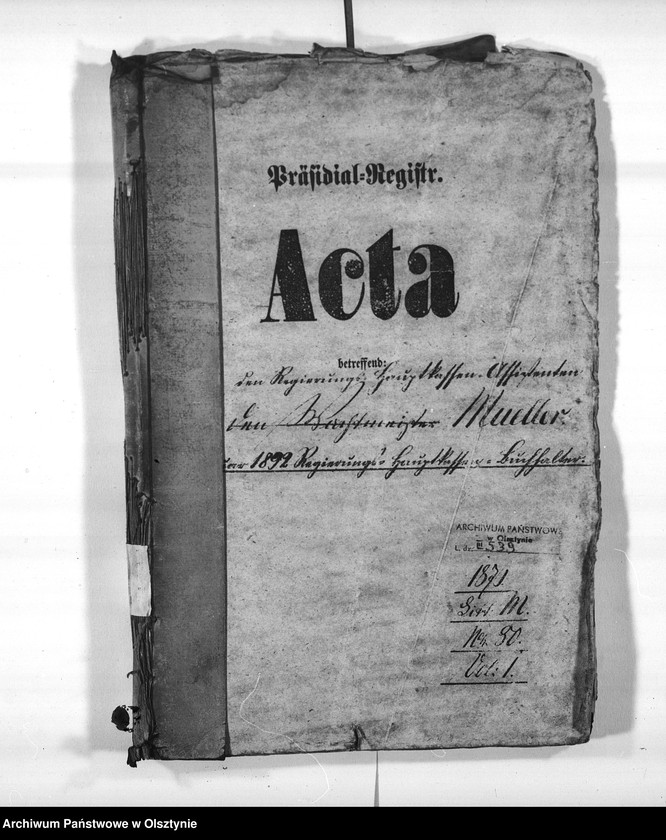 Präsidial-Registr.
Acta
betreffend:
den Regierungs Hauptkassen-Assistenten
den Wachtmeister Mueller.
1892 Regierungs Hauptkassen-Buchhalter.
ARCHIWUM PAŃSTWOWE
w Olsztynie
L. dz. III 539
M.
No. 50.
Vol: 1.
Archiwum Państwowe w Olsztynie